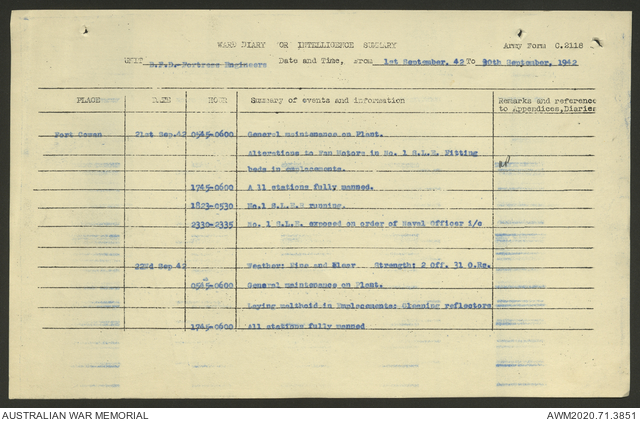 WARE DIARY OR INTELLIGENCE SUMMARY Army Form C.2118
UNIT Fortress Engineers Date and Time, From 1st September, 42 To 30th September, 1942
PLACE DATE HOUR Summary of events and information Remarks and reference
to Appendices, Diaries
Fort Cowan 21st Sep.42 0545-0600 General maintenance on Plant.
Alterations to Fan Motors in No. 1 S.L.E. Fitting
beds in emplacements.
1745-0600 A ll stations fully manned.
1823-0530 No.1 S.L.E running.
2330-2335 No. 1 S.L.E. exposed on order of Naval Officer i/c
22nd Sep 42 Weather: Fine and Clear Strength: 2 Off. 31 O.Rs.
0545-0600 General maintenance on Plant.
Laying malthoid in Emplacements: Cleaning reflectors
1745-0600 All stations fully manned
AUSTRALIAN WAR MEMORIAL AWM2020.71.3851